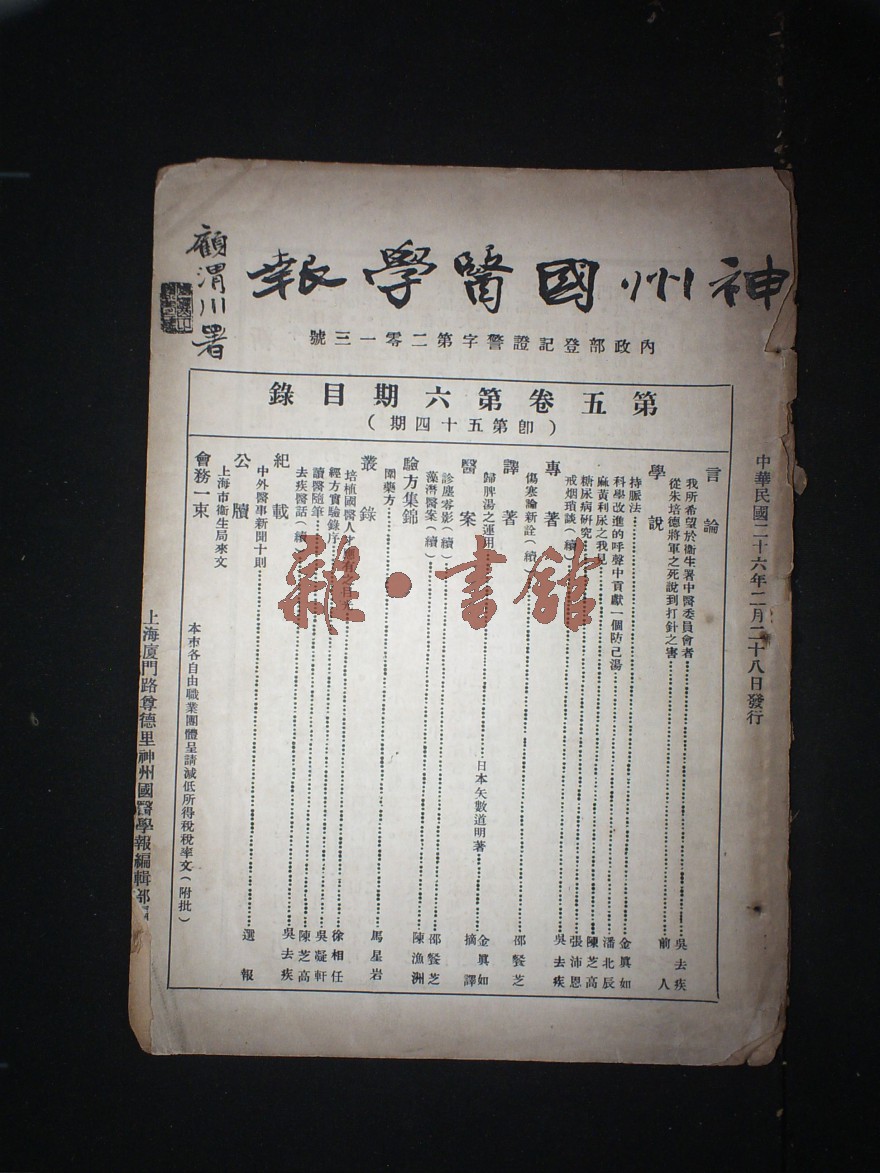 神州國醫學報
顧渭川署
內政部登記證警字第二零一三號
中華民國二十六年二月二十八日發行
第五卷第六期目錄
(即第五十四期)
言論
我所希望於衛生署中醫委員會者 吳去疾
從朱培德將軍之死說到打針之害 前人
學說
持脈法 金眞如
科學改進的呼聲中貢獻一個防己湯 潘北辰
麻黃利尿之我見 陳芝高
糖尿病研究 張沛恩
專著
戒烟瑣談(續) 吳去疾
傷寒論新詮(續) 邵餐芝
譯著
歸脾湯之運用 日本矢數道明著 金眞如摘譯
醫案
診塵零影(續) 邵餐芝
藻潛醫案(續) 陳漁洲
驗方集錦
圍藥方 馬星岩
叢錄
培植國醫人才 徐相任
經方實驗錄序 吳凝軒
讀醫隨筆 陳芝高
去疾醫話(續) 吳去疾
紀載
中外醫事新聞十則 選報
公牘
上海市衛生局來文
本市各自由職業團體呈請減低所得稅稅率文(附批)
會務一束
上海廈門路尊德里神州國醫學報編輯部
雜·書館